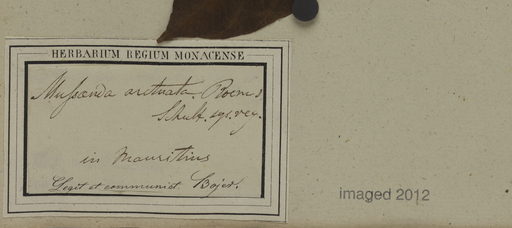 HERBARIUM REGIUM MONACENSE
Mussaenda arcuata. Roem &
Schult. sys. veg.
in Mauritius
Legit et communist Bojer.
imaged 2012